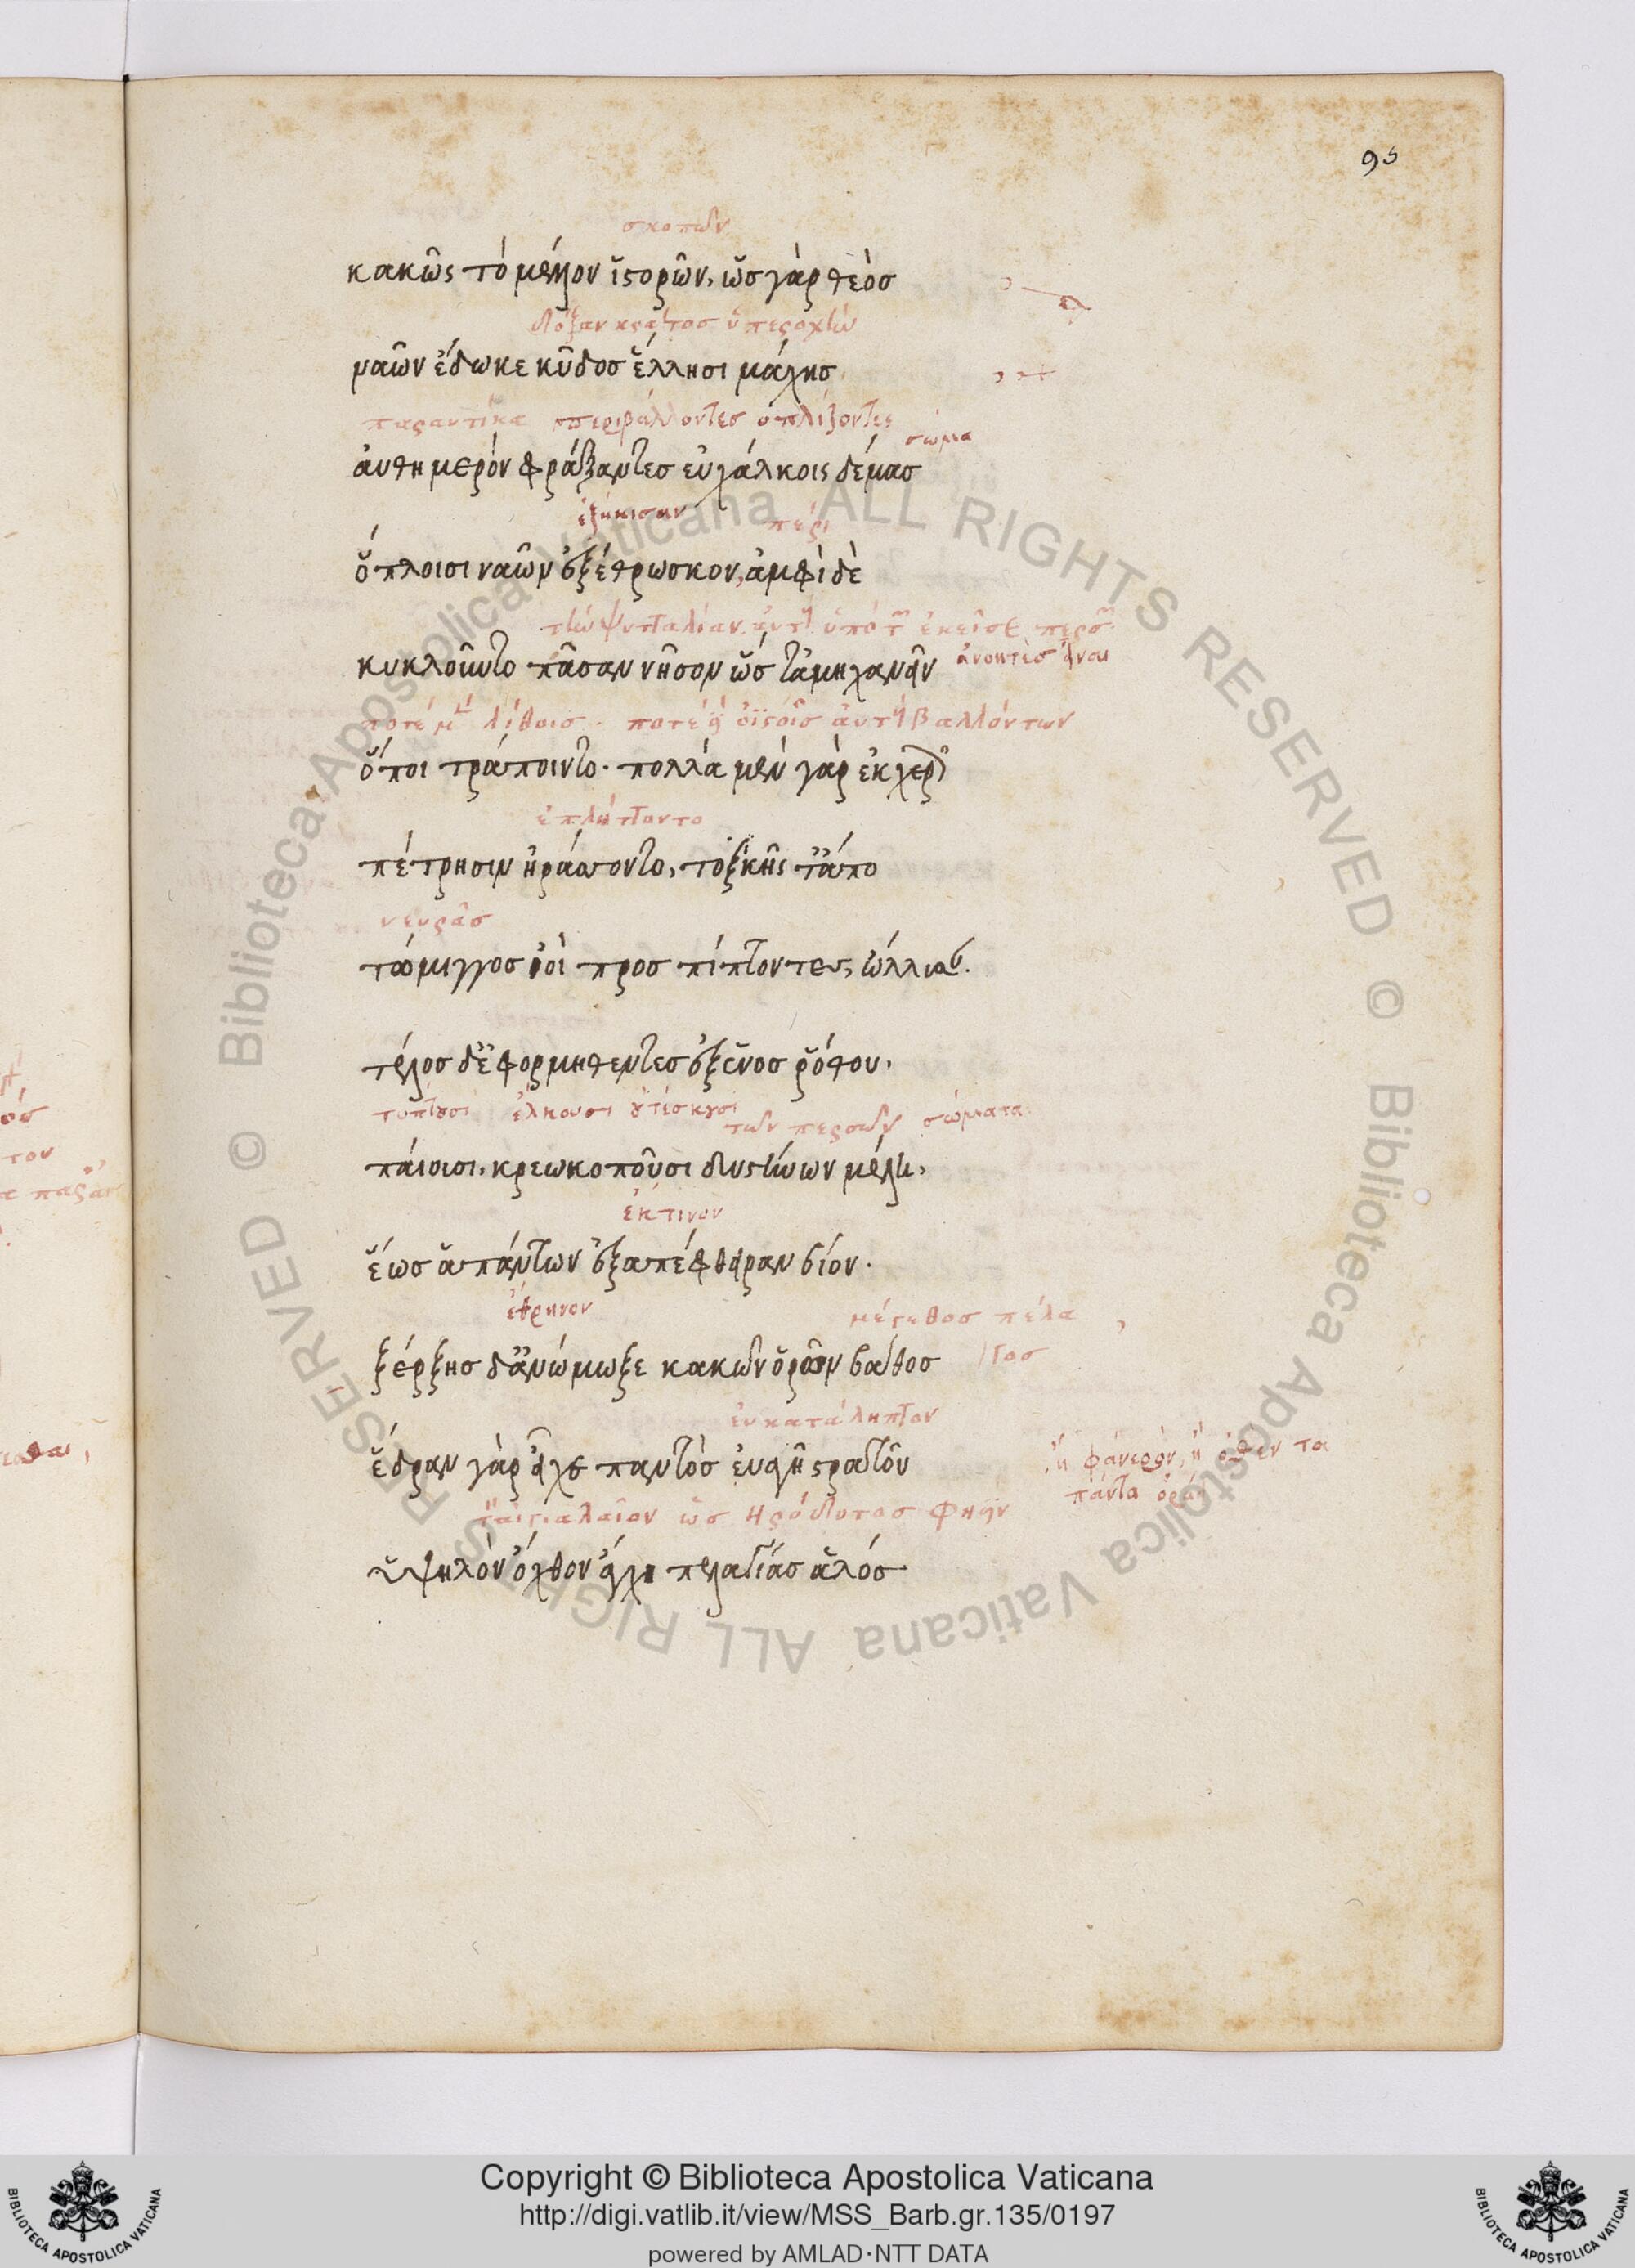 95
σκοπῶν
κακῶς τὸ μέλλον ἱστορῶν, ὡς γὰρ θεὸς
δόξαν κράτος ὑπεροχὴν
ναῶν ἔδωκε κῦδος ἕλλησι μάχης
παραυτίκα περιβάλλοντες ὁπλίζοντες
σῶμα
ἀυθημερὸν φράξαντες ευχάλκοις δέμας
ἐξήκισαν περὶ
ὅπλοισι ναῶν ἐξέθρωσκον, ἀμφὶ δὲ
τὴν ψυτταλίαν ἐκεῖσε
κυκλοῦντο πᾶσαν νῆσον ὥστ ἀμηχανεῖν
ποτὲ μὲν λίθοις. ποτὲ ὀϊστοῖς ἀυτὴ βαλλόντων
ὅποι τράποιντο. πολλὰ μὲν γὰρ ἐκ χερῶν
ἐπλήττοντο
πέτρησιν ἠράσσοντο, τοξικῆς τ ἄπο
νευρᾶς
θώμιγγος ἰοὶ προσπίπτοντες, ὤλλυσαν.
τέλος δ ἐφορμηθέντες ἐξ ἑνὸς ῥόθου,
τύπτουσι ἕλκουσι
τῶν περσῶν σώματα
πάιουσι, κρεωκοποῦσι δυστήνων μέλη,
ἕως ἁπάντων ἐξαπέφθειραν βίον.
ἐθρήνον μέγεθος πέλα
γος
ξέρξης δ ἀνώμωξε κακῶν ὁρῶν βάθος
ἐυκατάληπτον
ἕδραν γὰρ εἶχε παντὸς ἐυαγῆ στρατοῦ
ἢ φάνερὸν, ἢ ὅθεν τα
πάντα ὁρᾶν
ὡς Ηρόδοτος φησὶν
ὑψηλὸν ὄχθον ἄγχι πελαγίας ἁλός
Copyright © Biblioteca Apostolica Vaticana
http://digi.vatlib.it/view/MSS_Barb.gr.135/0197
powered by AMLAD·NTT DATA
BIBLIOTECA APOSTOLICA VATICANA
BIBLIOTECA APOSTOLICA VATICANA
© Biblioteca Apostolica Vaticana ALL RIGHTS RESERVED
© Biblioteca Apostolica Vaticana ALL RIGHTS RESERVED